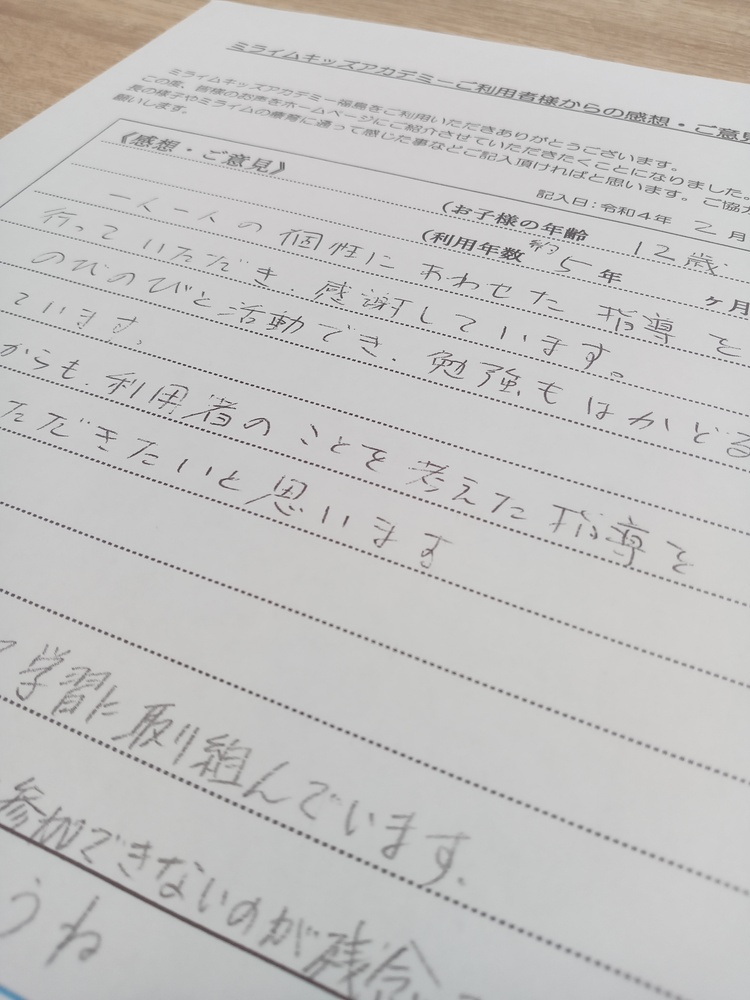 ミライムキッズアカデミーご利用者様からの感想・ご意見
ミライムキッズアカデミー福島をご利用いただきありがとうございます。
この度、皆様のお声をホームページにご紹介させていただきたくことになりました。
長の様子やミライムの療育に通って感じた事などご記入頂ければと思います。ご協力
願いします。
記入日:令和4年 2月
《感想・ご意見》
(お子様の年齢 12歳
(利用年数 約5年 ヶ月
一人一人の個性にあわせた指導を
行っていただき、感謝しています。
のびのびと活動でき、勉強もはかどる
ています。
からも、利用者のことを考えた指導を
ただきたいと思います
学習に取り組んでいます。
参加できないのが残念
うね